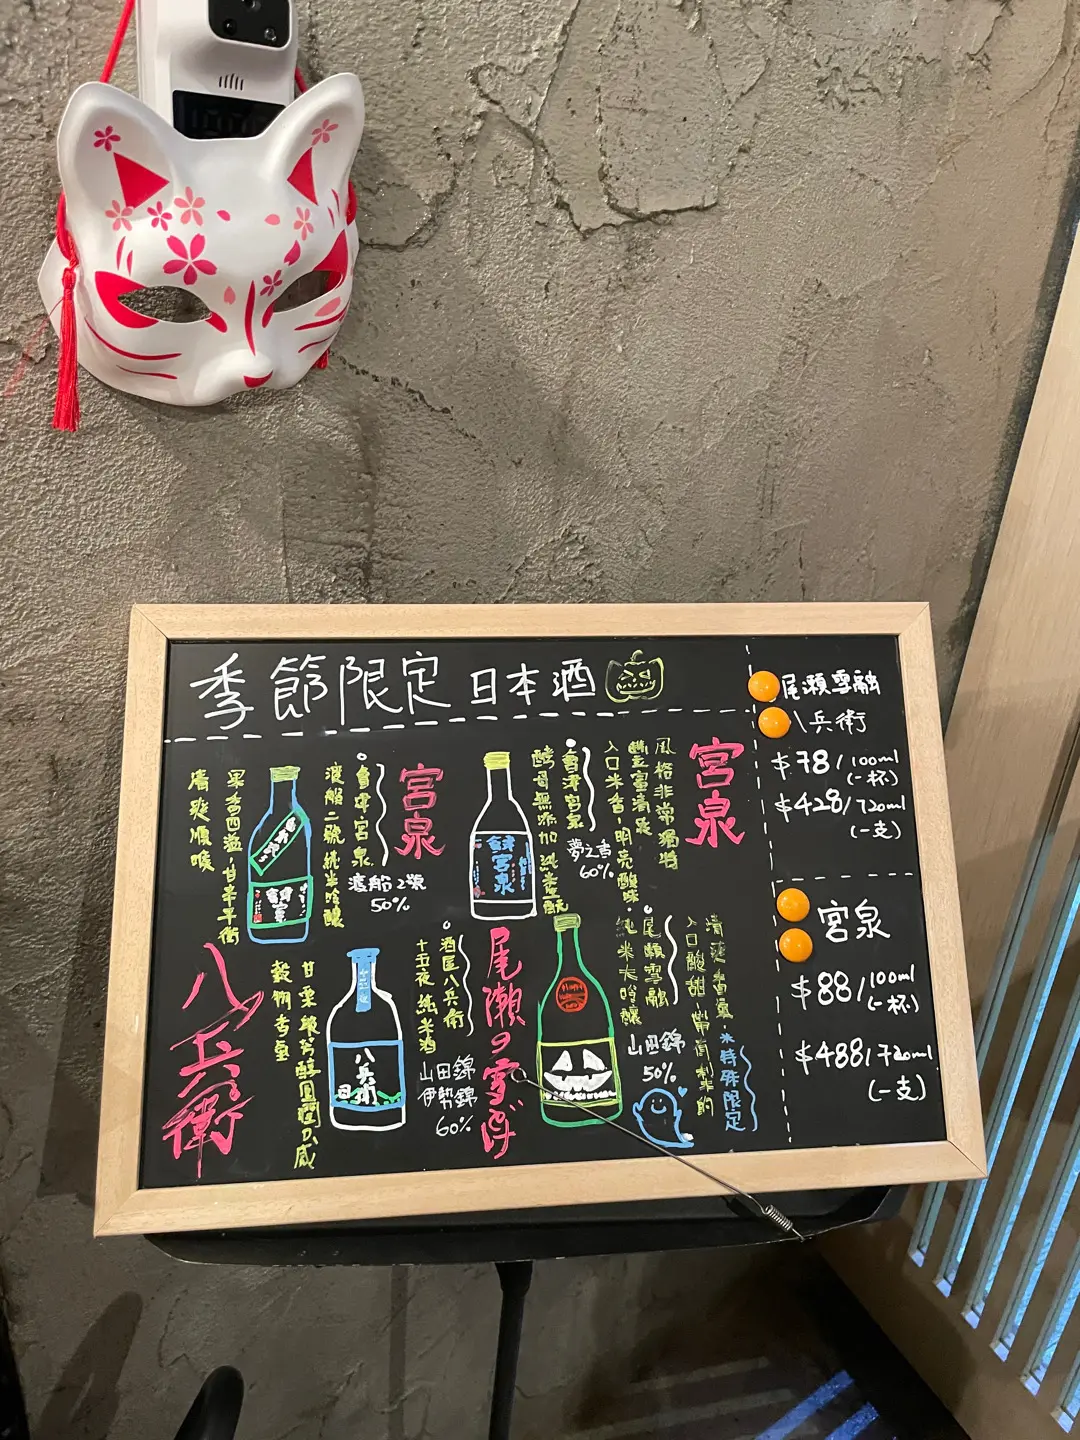 季節限定日本酒
宮泉
風格非常獨特
豐富清淚
入口米香,明亮酸味
會津宮泉
酵母無添加 純米生酛
夢之香
60%
會津宮泉
宮泉
會津宮泉
渡船二號純米吟釀
渡船2號
50%
果香四溢,甘辛平衡
清爽順喉
尾瀨の雪どけ
清漣香氣,
入口酸甜,帶有利米的
米特殊限定
尾瀨雪融
純米大吟釀
山田錦
50%
酒匠八兵衛
十五夜 純米酒
山田錦
伊勢錦
60%
八兵衛
八兵衛
甘栗
穀物香氣
尾瀨雪融
八兵衛
$78/100ml
(一杯)
$428/720ml
(一支)
宮泉
$88/100ml
(一杯)
$488/720ml
(一支)